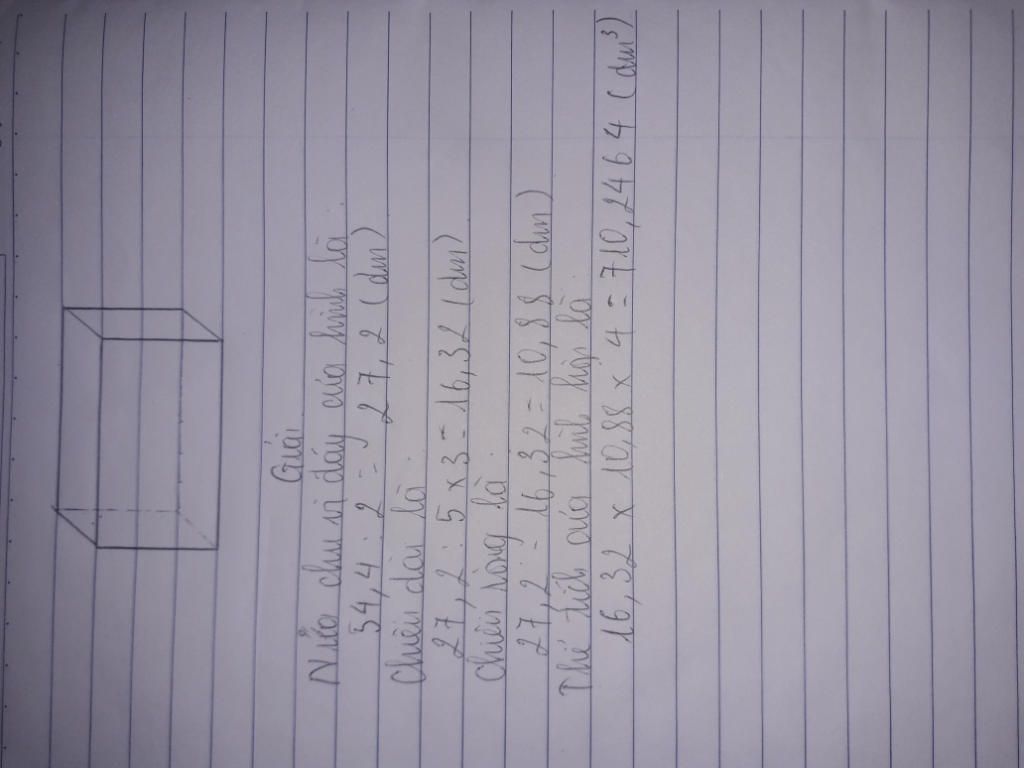 Giải
Nửa chu vi đáy của hình là
54,4 : 2 = 27,2 (dm)
Chiều dài là
27,2 : 5 x 3 = 16,32 (dm)
Chiều rộng là
27,2 - 16,32 = 10,88 (dm)
Thể tích của hình hộp là
16,32 x 10,88 x 4 = 710,2464 (dm³)